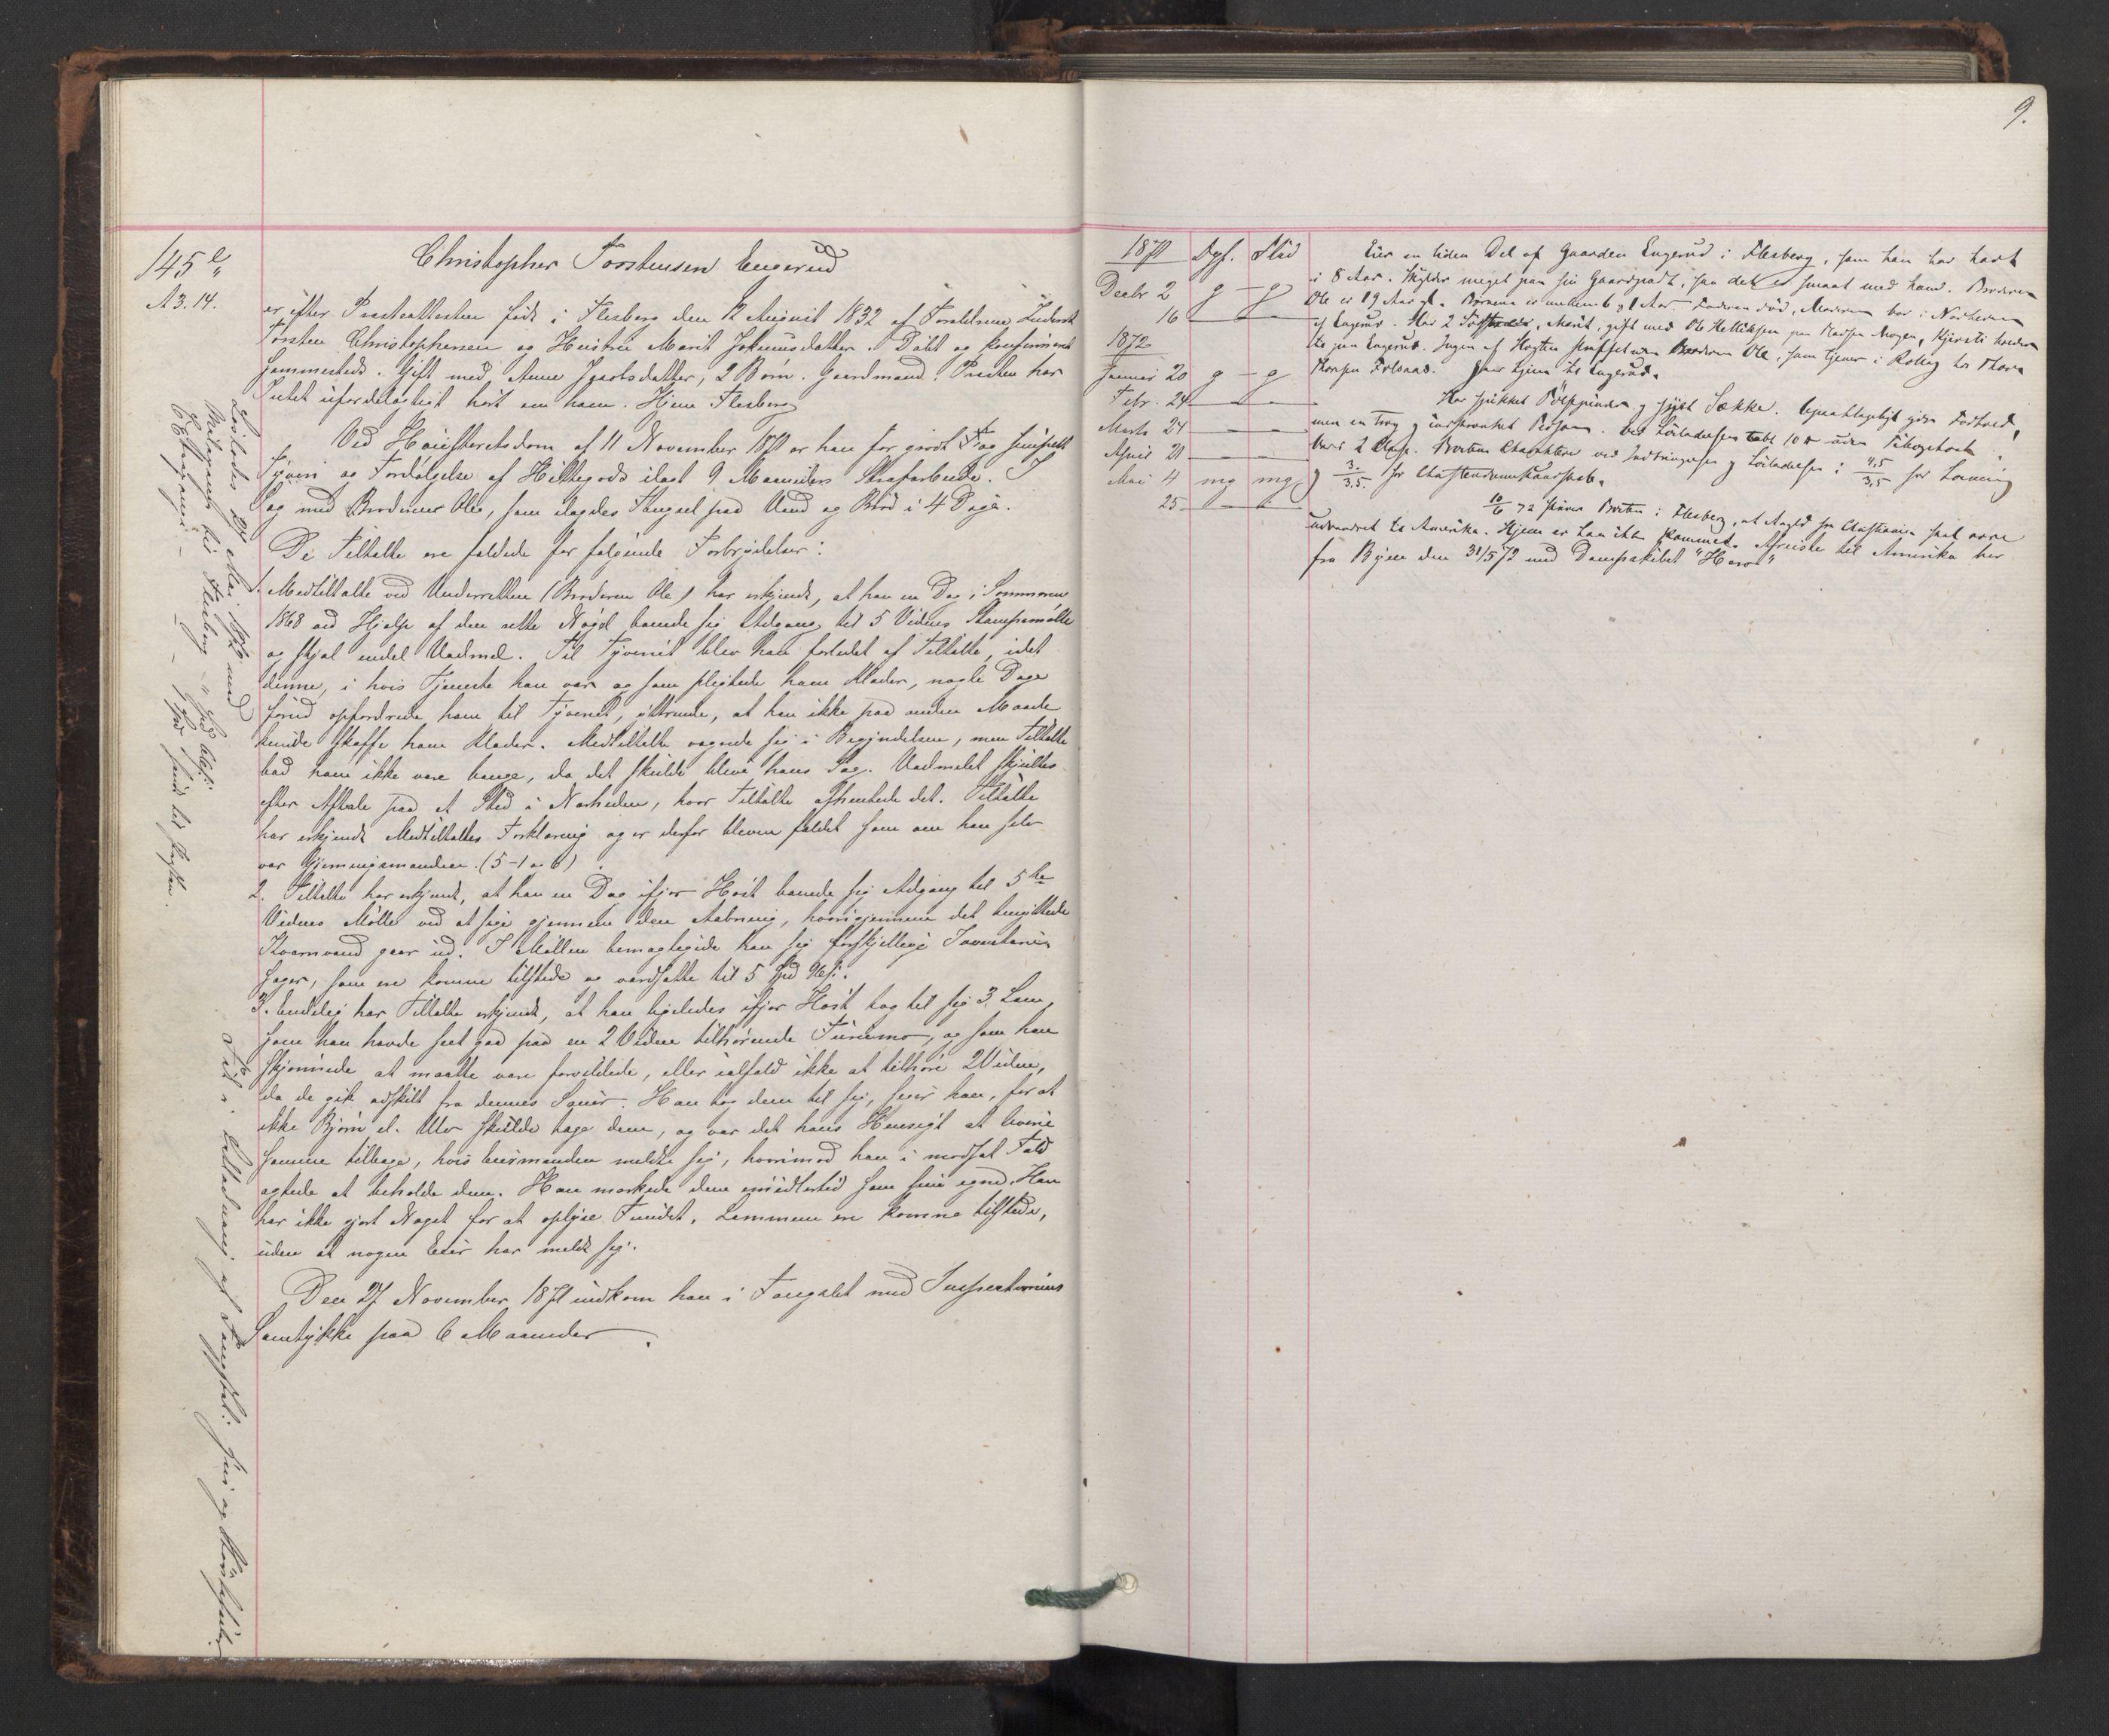 145 e/
A 3. 14.
Christopher Torstensen Engerud
er efter Præsteattesten født i Flesberg den 12 August 1832 af Forældrene Inderst
Torsten Christophersen og Hustru Marit Johnnusdatter. Døbt og konfirmeret
sammesteds. Gift med Anne Igaa datter, 2 Børn. Gaardmand. Præsten har
Intet ufordelagtigt hørt om ham. Hjem Flesberg
Ved Høiesteretsdom af 11 November 1871 er han for groft Tog simpelt
Tyveri og Fordølgelse af Hittegods ilagt 9 Maaneders Strafarbeide. I
Sag med Broderen Ole, som ilagdes Fængsel paa Vand og Brød i 4 Dage.
De Tiltalte ere fældede for følgende Forbrydelser:
1. Medtiltalte ved Underretten (Broderen Ole) har erkjendt, at han en Dag i Sommeren
1868 ved Hjælp af den rette Nøgel banede sig Adgang til 5 Vidnes Stampemølle
og stjal endel Vadmel. Til Tyveriet blev han forledet af Tiltalte, idet
denne, i hvis Tjeneste han var og som pligtede ham Klæder, nogle Dage
forud opfordrede ham til Tyveriet, yttrende, at han ikke paa anden Maade
kunde skaffe ham Klæder. Medtiltalte vægrede sig i Begyndelsen, men Tiltalte
bad ham ikke være bange, da det skulde blive hans Sag. Vadmelet skjultes
efter Aftale paa et Sted i Nærheden, hvor Tiltalte afhentede det. Tiltalte
har erkjendt Medtiltaltes Forklaring og er derfor bleven fældet som om han selv
var Gjerningsmanden. (5-1 og 6)
2. Tiltalte har erkjendt, at han en Dag ifjor Høst banede sig Adgang til 5te
Vidnes Mølle ved at sige gjennem den Aabning, hvorigjennem det benyttede
Kværnvand gaar ud. I Møllen bemægtigede han sig forskjellige Inventarie-
sager, som ere komne tilstede og værdsatte til 5 Spd 96 s.
3. Endelig har Tiltalte erkjendt, at han ligeledes ifjor Høst tog til sig 3 Lam,
som han havde seet gaa paa en 2 Vidne tilhørende Furumo, og som han
skjønnede at maatte være forvildede, eller ialfald ikke at tilhøre 2 Vidne,
da de gik adskilt fra dennes Sauer. Han tog dem til sig, siger han, for at
ikke Bjørn el. Ulv skulde tage dem, og var det hans Hensigt at levere
samme tilbage, hvis Eiermanden meldte sig, hvorimod han i modsat Fald
agtede at beholde dem. Han mærkede dem imidlertid som sine egne. Han
har ikke gjort Noget for at oplyse Fundet. Lammene ere komne tilstede,
uden at nogen Eier har meldt sig.
Den 27 November 1871 indkom han i Fængslet med Inspektionens
Samtykke paa 6 Maaneder.
Løslodes 27 Mai 1872 med
Reisepenge til Flesberg
Christiania
Tid i Udstaaen af Fængsel:
9.
1871 Opf. Flid
Decbr 2 g - g
16 — —
1872
Januar 20 g - g
Febr. 24 — —
Marts 24 — —
April 21 — —
Mai 4 mg mg
25 — —
Eier en liden Del af Gaarden Engerud i Flesberg, som han har havt
i 8 Aar. Skylder meget paa sin Gaardpart, saa det er smaat med ham. Broderen
Ole er 19 Aar gl. Børnene er mellem 6 og 1 Aar. Faderen død, Moderen bor i Nærheden
af Engerud. Har 2 Søstre, Marit, gift med Ole Helliksen paa Mogen, Kjersti
paa Engerud. Ingen af Slægten straffet uden Broderen Ole, som tjener i Rollag hos Thore
Thorsen Folsnæs. Hjem til Engerud.
Har spikket Pølsepinder og syet Sække. Upaaklageligt god Forhold,
men en Ved Løsladelsen tabt 10 uden
Var i 2 Klasse. Charakter ved Indbringelsen og Løsladelsen: 4.5/3.5 for Læsning
og 3./3.5. for Christendomskundskab.
10/6 72 skriver Præsten i Flesberg, at Angjd fra Christiania skal være
udvandret til Amerika. Hjem er han ikke kommet. Afreiste til Amerika her
fra Byen den 31/5 72 med Dampskibet "Hero"